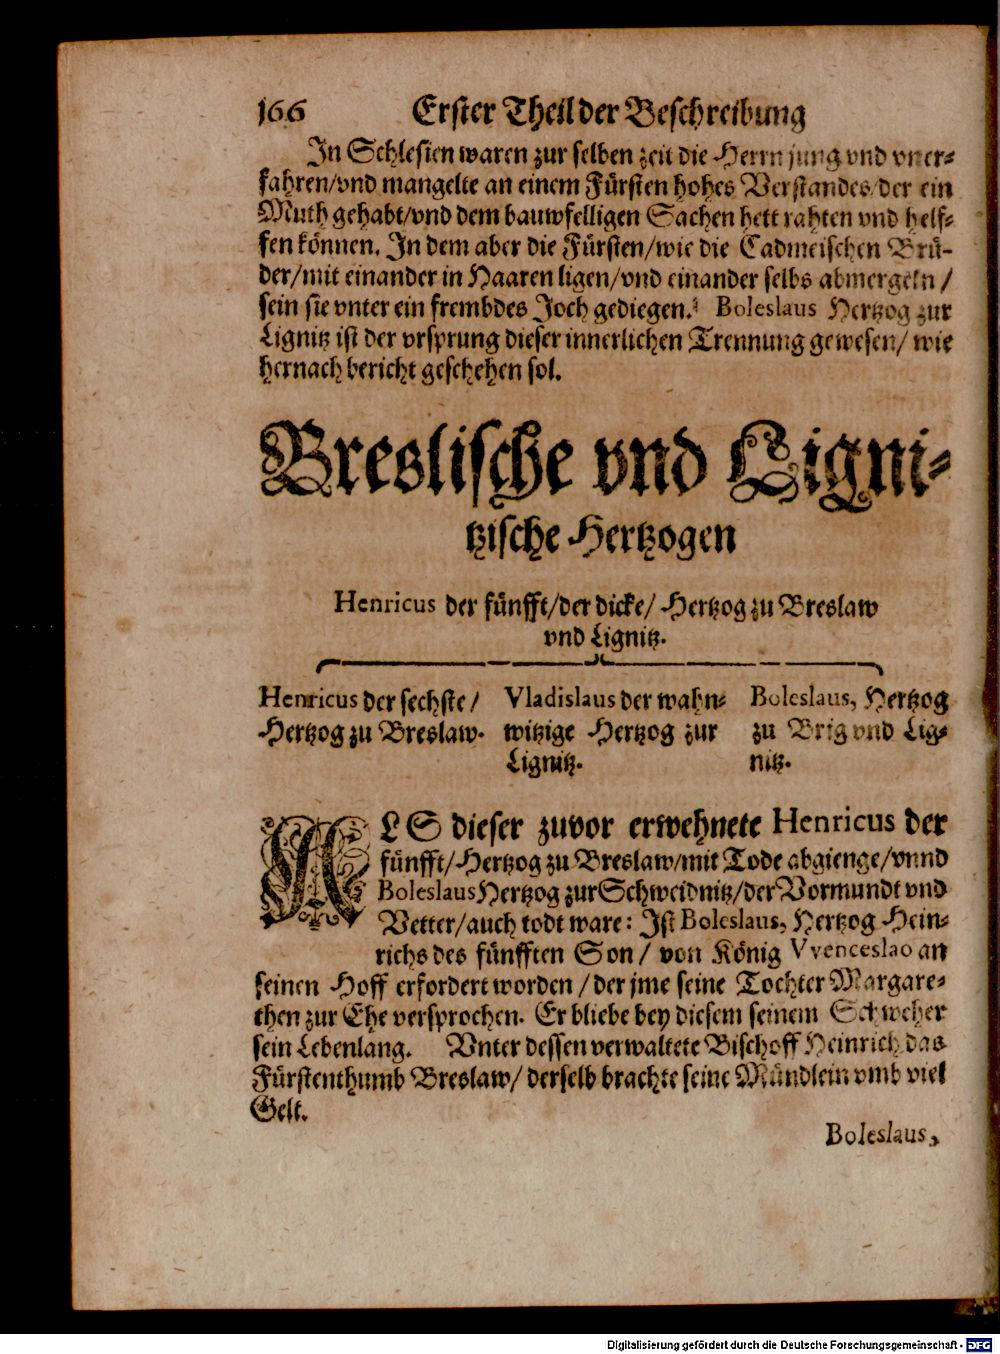 166 Erster Theil der Beschreibung
In Schlesien waren zur selben zeit die Herrn jung vnd vner-
fahren/vnd mangelte an einem Fürsten hohes Verstandes/der ein
Muth gehabt/vnd dem bauwfelligen Sachen hett rahten vnd helf-
fen können. In dem aber die Fürsten/wie die Cadmeischen Brü-
der/mit einander in Haaren ligen/vnd einander selbs abmergeln/
sein sie vnter ein frembdes Joch gediegen. Boleslaus Hertzog zur
Lignitz ist der vrsprung dieser innerlichen Trennung gewesen/ wie
hernach bericht geschehen sol.
Breslische vnd Ligni-
tzische Hertzogen
Henricus der fünfft/der dicke/ Hertzog zu Breslaw
vnd Lignitz.
Henricus der sechste/
Hertzog zu Breslaw.
Vladislaus der wahn-
witzige Hertzog zur
Lignitz.
Boleslaus, Hertzog
zu Brig vnd Lig-
nitz.
ALS dieser zuvor erwehnete Henricus der
fünfft/Hertzog zu Breslaw/mit Tode abgienge/vnnd
Boleslaus Hertzog zur Schweidnitz/der Vormundt vnd
Vetter/auch todt ware: Ist Boleslaus, Hertzog Hein-
richs des fünfften Son/ von König Vvenceslao an
seinen Hoff erfordert worden/der jme seine Tochter Margare-
then zur Ehe versprochen. Er bliebe bey diesem seinem Schweher
sein Lebenlang. Vnter dessen verwaltete Bischoff Heinrich das
Fürstenthumb Breslaw/ derselb brachte seine Mündlein vmb viel
Gelt.
Boleslaus,
Digitalisierung gefördert durch die Deutsche Forschungsgemeinschaft - DFG